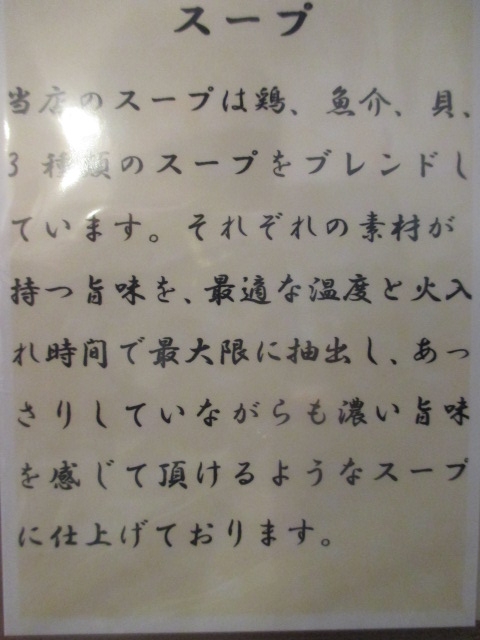 スープ
当店のスープは鶏、魚介、貝、
3種類のスープをブレンドし
ています。それぞれの素材が
持つ旨味を、最適な温度と火入
れ時間で最大限に抽出し、あっ
さりしていながらも濃い旨味
を感じて頂けるようなスープ
に仕上げております。